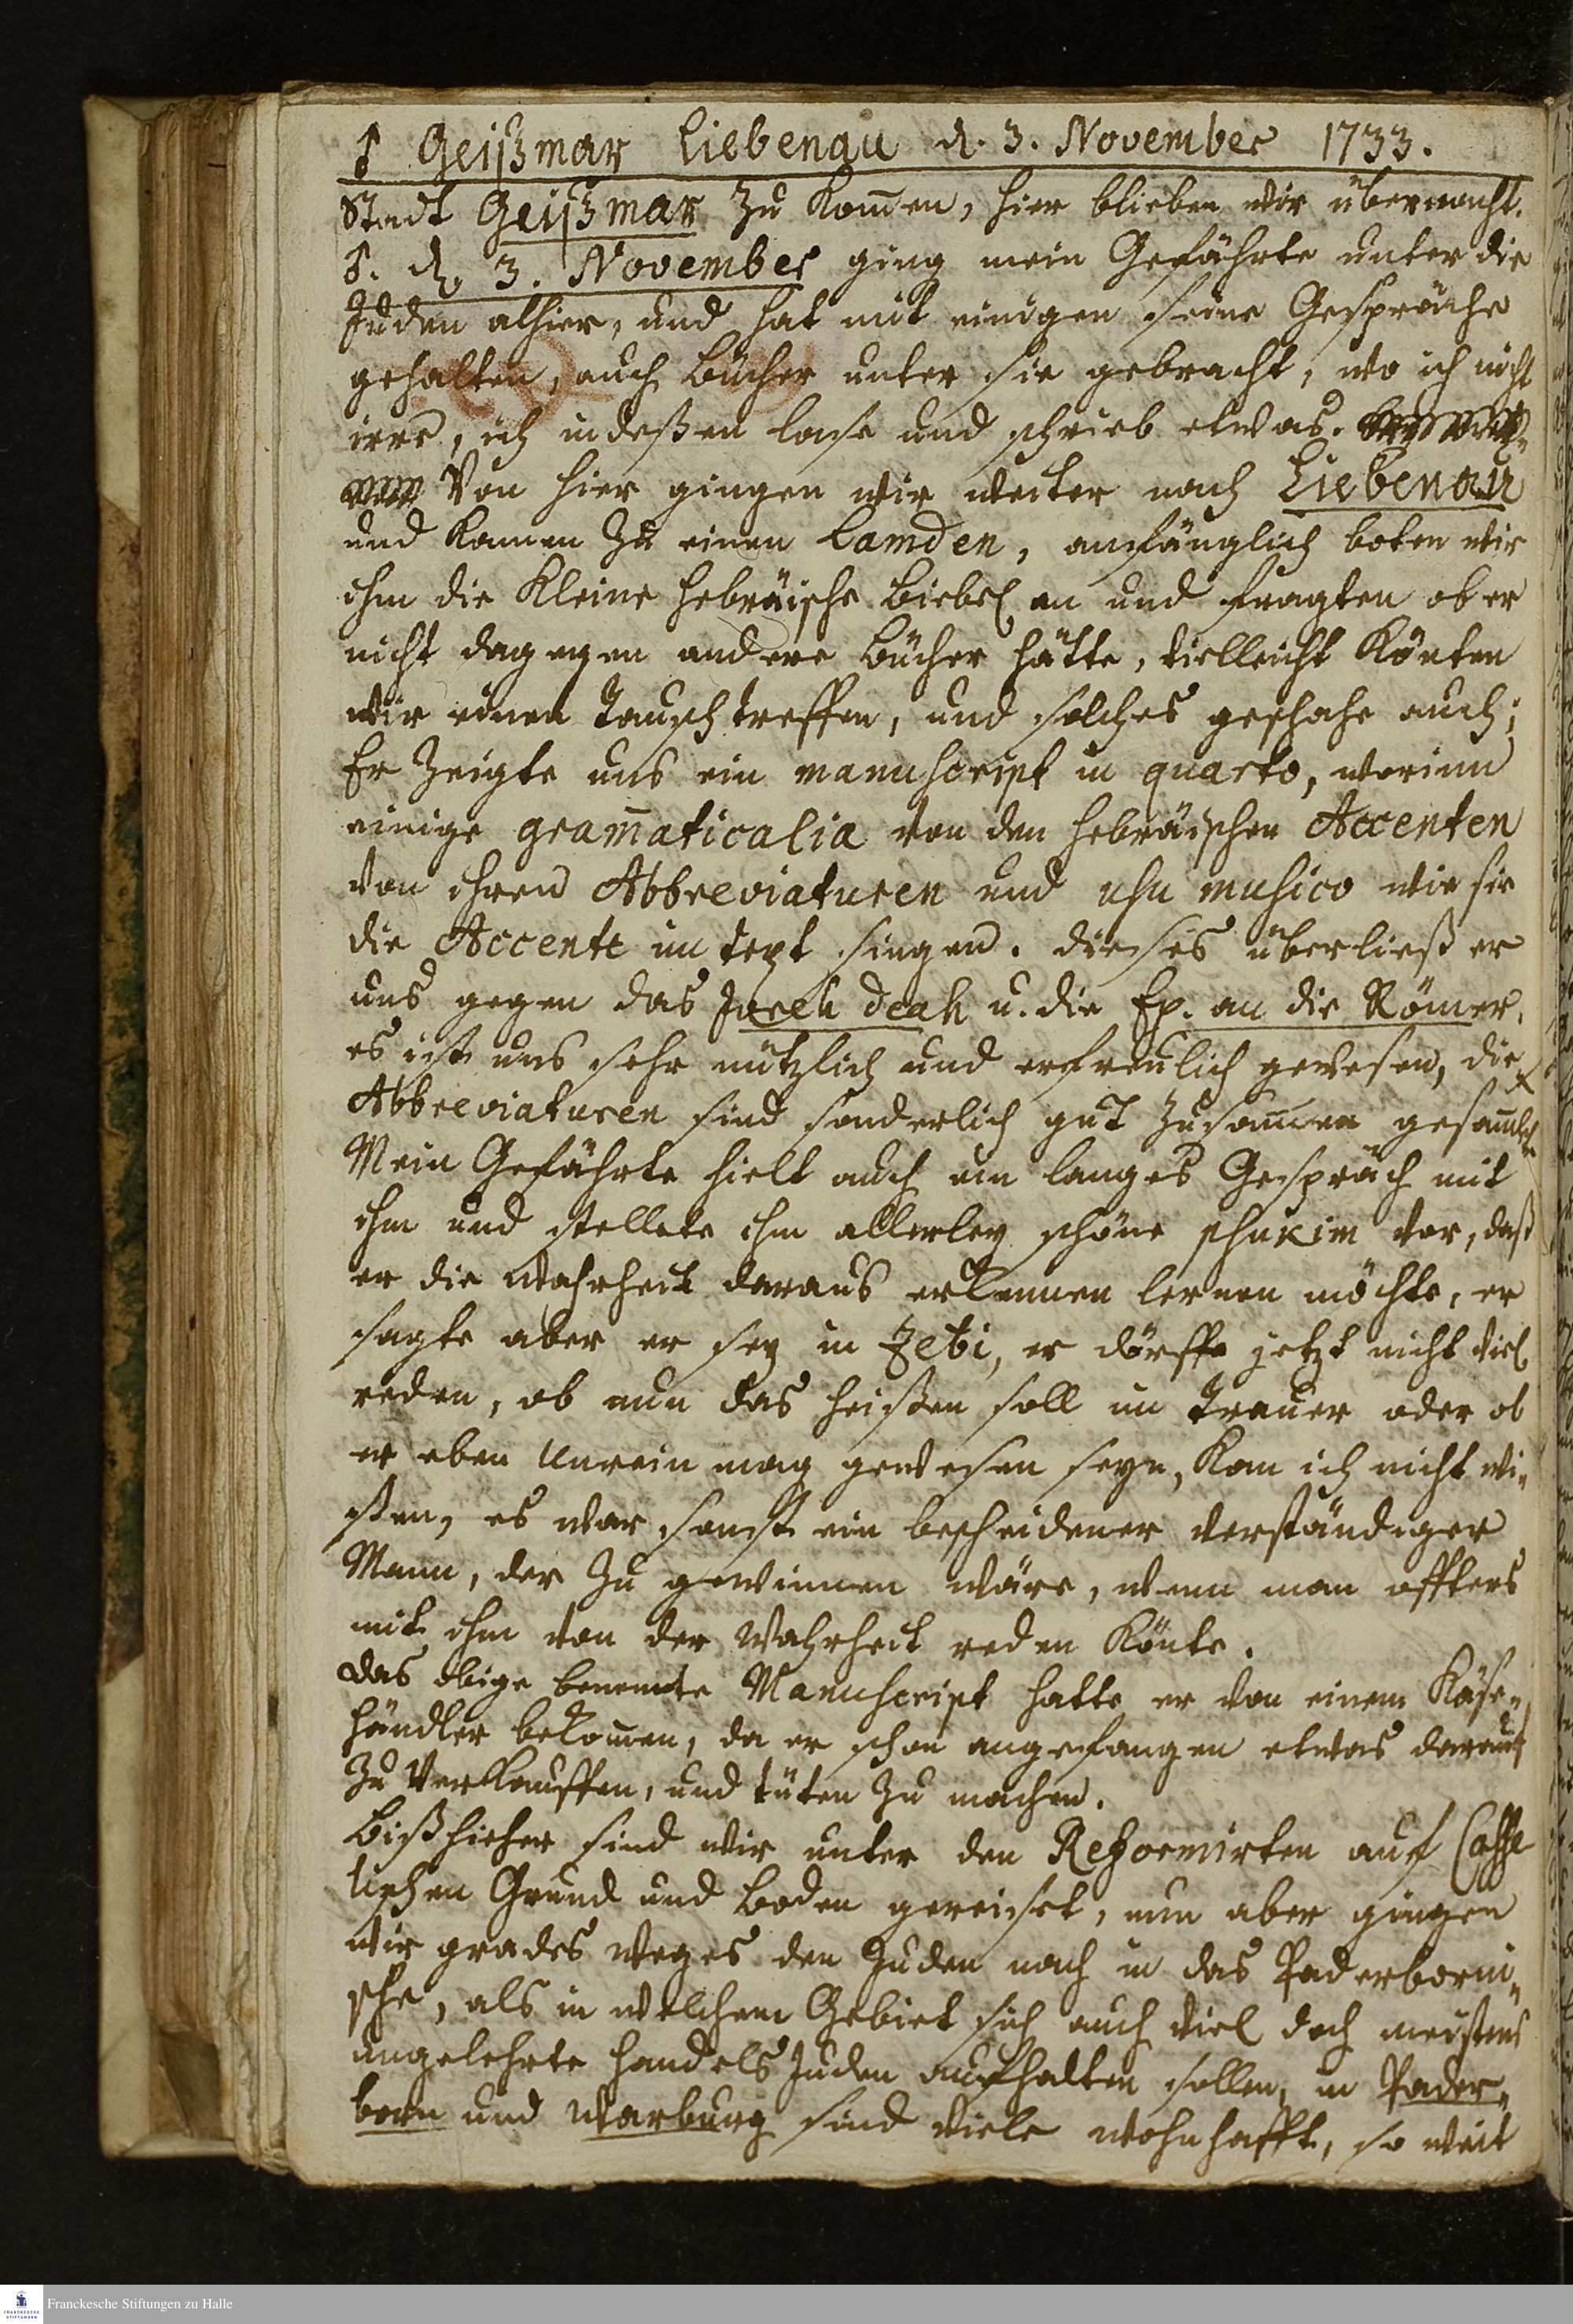 ♂ Geißmar Liebenau d. 3. November 1733.
Stadt Geißmar zu kom̅en, hier blieben wir übernacht.
♂. d. 3. November ging mein Gefährte unter die
Juden alhier, und hat mit einigen seine Gespräche
gehalten, auch Bücher unter sie gebracht, wo ich nicht
irre, ich indeßen lase und schrieb etwas.
Von hier gingen wir weiter nach Liebenau
und kamen zu einen Lamden, anfänglich boten wir
ihm die kleine hebräische Biebel an und fragten ob er
nicht dagegen andere Bücher hätte, vielleicht könten
wir einen Tausch treffen, und solches geschahe auch;
Er zeigte uns ein manuscript in quarto, worinn
einige gram̅aticalia von den hebräischen Accenten
von ihren Abbreviaturen und usu musico wie sie
die Accente im text singen. dieses überließ er
uns gegen das Joreh deah u. die Ep. an die Römer.
es ist uns sehr nützlich und erfreulich gewesen, die
Abbreviaturen sind sonderlich gut zusam̅en gesam̅let
Mein Gefährte hielt auch ein langes Gespräch mit
ihm und stellete ihm allerley schöne psukim vor, daß
er die Wahrheit daraus erkennen lernen möchte, er
sagte aber er sey in Zebi, er dörffe jetzt nicht viel
reden, ob nun das heißen soll in Trauer oder ob
er eben Unrein mag gewesen seyn, kan ich nicht wi-
ßen, es war sonst ein bescheidener verständiger
Mann, der zu gewinnen wäre, wenn man offters
mit ihm von der Wahrheit reden könte.
das obige benennte Manuscript hatte er von einem Käse-
händler bekom̅en, da er schon angefangen etwas daraus
zu verkauffen, und tüten zu machen.
Bißhieher sind wir unter den Reformirten auf Cassel
lischen Grund und Boden gereiset, nun aber gingen
wir grades weges den Juden nach in das Paderborni-
sche, als in welchem Gebiet sich auch viel doch meistens
ungelehrte handels Juden aufhalten sollen, in Pader-
born und Warburg sind viele wohnhafft, so weit
Franckesche Stiftungen zu Halle